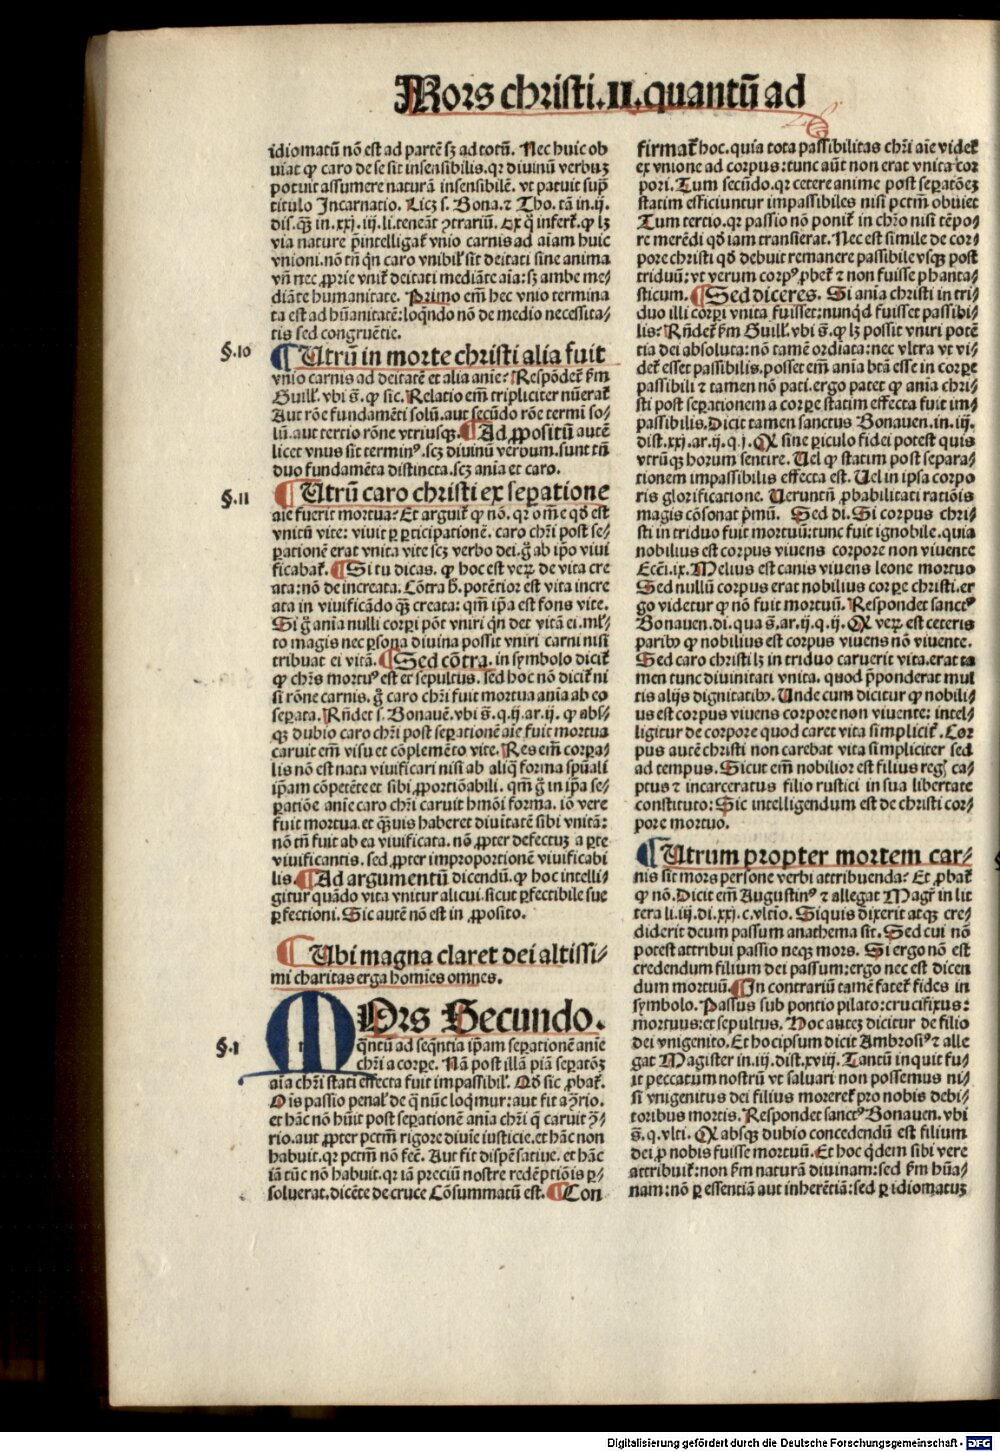 Mors christi.II.quantū ad
idiomatū nō est ad partē sꝫ ad totū. Nec huic ob
uiat ꝙ caro de se sit insensibilis.qr diuinū verbuꝫ
potuit assumere naturā insensibilē. vt patuit supͣ
titulo Incarnatio. Licꝫ s. Bona.⁊ Tho. tā in.ij.
dis.q̄ꝫ in.xxj.iij.li.teneāt ꝯtrariū. Ex q̊ infert̄.ꝙ lꝫ
via nature p̄intelligat̄ vnio carnis ad aīam huic
vnioni.nō tn̄ qn̄ caro vnibil' sit deitati sine anima
vn̄ nec ꝓprie vnit̄ deitati mediāte aīa:sꝫ ambe me-/
diāte humanitate. Primo em̄ hec vnio termina
ta est ad hūanitatē:loqn̄do nō de medio necessita-/
tis sed congruētie.
§.10
¶ Utrū in morte christi alia fuit
vnio carnis ad deitatē et alia anīe? Respōdet̄ ẜm
Guill'. vbi s̄. ꝙ sic. Relatio em̄ tripliciter nūerat̄
Aut rōe fundamēti solū.aut secūdo rōe termi so-/
lū.aut tertio rōne vtriusqꝫ. ¶ Ad ꝓpositū autē
licet vnus sit terminꝰ.scꝫ diuinū verbum.sunt tn̄
duo fundamēta distincta.scꝫ anīa et caro.
§.11
¶ Utrū caro christi ex seꝑatione
aīe fuerit mortua? Et arguit̄ ꝙ nō. qr om̄e qd̄ est
vnitū vite: viuit ꝑ ꝑticipationē. caro chr̄i post se-/
ꝑationē erat vnita vite scꝫ verbo dei.g̊ ab ip̄o viui
ficabat̄. ¶ Si tu dicas. ꝙ hoc est veꝝ de vita cre
ata:nō de increata. Cōtra h̄. potētior est vita incre
ata in viuificādo q̄ꝫ creata: qm̄ ip̄a est fons vite.
Si g̊ anīa nulli corpi pōt vniri qn̄ det vitā ei.ml'-/
to magis nec ꝑsona diuina possit vniri carni nisi
tribuat ei vitā. ¶ Sed cōtra. in symbolo dicit̄
ꝙ chr̄s mortuꝰ est et sepultus. sed hoc nō dicit̄ ni
si rōne carnis. g̊ caro chr̄i fuit mortua anīa ab eo
seꝑata. Rn̄det s. Bonauē. vbi s̄. q.ij.ar.ij. ꝙ abs-/
qꝫ dubio caro chr̄i post seꝑationē aīe fuit mortua
caruit em̄ visu et cōplemēto vite. Res em̄ corꝑa-/
lis nō est nata viuificari nisi ab aliq̄ forma spūali
ip̄am cōpetēte et sibi ꝓportiōabili. qm̄ g̊ in ip̄a se-/
ꝑatiōe anīe caro chr̄i caruit hmōi forma. iō vere
fuit mortua.et q̄ꝫuis haberet diuītatē sibi vnitā:
nō tn̄ fuit ab ea viuificata. nō ꝓpter defectuꝫ a ꝑte
viuificantis. sed ꝓpter improportionē viuificabi
lis. ¶ Ad argumentū dicendū.ꝙ hoc intelli-/
gitur quādo vita vnitur alicui.sicut ꝑfectibile sue
ꝑfectioni. Sic autē nō est in ꝓposito.
¶ Ubi magna claret dei altissi-/
mi charitas erga homīes omnes.
§.1
MOrs Secundo.
q̄ntū ad seq̄ntia ip̄am seꝑationē anīe
chr̄i a corꝑe. Nā post illā piā seꝑatōꝫ
aīa chr̄i stati effecta fuit impassibil'. Qd̄ sic ꝓbat̄.
Ois passio penal' de q̄ nūc loqmur:aut fit aꝯ̄rio.
et hāc nō hūit post seꝑationē anīa chr̄i q̄ caruit ꝯ̄-/
rio.aut ꝓpter pctm̄ rigore diuīe iusticie.et hāc non
habuit.qr pctm̄ nō fec̄. Aut fit dispēsatiue. et hāc
iā tūc nō habuit.qr iā preciū nostre redēptiōis ꝑ-/
soluerat.dicēte de cruce Cōsummatū est. ¶ Con
firmat̄ hoc.quia tota passibilitas chr̄i aīe videt̄
ex vnione ad corpus:tunc aūt non erat vnita cor
pori. Tum secūdo.qr cetere anime post seꝑatōeꝫ
statim efficiuntur impassibiles nisi pctm̄ obuiet
Tum tertio.qr passio nō ponit̄ in chr̄o nisi tēpo-/
re merēdi qd̄ iam transierat. Nec est simile de cor-/
pore christi qd̄ debuit remanere passibile vsqꝫ post
triduū:vt verum corpꝰ ꝓbet̄ ⁊ non fuisse phanta-/
sticum. ¶ Sed diceres. Si anīa christi in tri-/
duo illi corꝑi vnita fuisset:nunqd fuisset passibi-/
lis? Rn̄det̄ ẜm Guill'. vbi s̄. ꝙ lꝫ possit vniri potē
tia dei absoluta:nō tamē ordīata:nec vltra vt vi-/
det̄ esset passibilis.posset em̄ anīa btā esse in corꝑe
passibili ⁊ tamen nō pati.ergo patet ꝙ anīa chri-/
sti post seꝑationem a corꝑe statim effecta fuit im-/
passibilis. Dicit tamen sanctus Bonauen. in.iij.
dist.xxj.ar.ij.q.j. Q sine ꝑiculo fidei potest quis
vtrūqꝫ horum sentire. Uel ꝙ statim post separa-/
tionem impassibilis effecta est. Uel in ipsa corpo
ris glorificatione. Ueruntn̄ ꝓbabilitati ratiōis
magis cōsonat p̄mū. Sed di. Si corpus chri-/
sti in triduo fuit mortuū:tunc fuit ignobile.quia
nobilius est corpus viuens corpore non viuente
Ecci.ix. Melius est canis viuens leone mortuo
Sed nullū corpus erat nobilius corꝑe christi.er
go videtur ꝙ nō fuit mortuū. Respondet sanctꝰ
Bonauen.di.qua s̄.ar.ij.q.ij. Q veꝝ est ceteris
paribꝰ ꝙ nobilius est corpus viuens nō viuente.
Sed caro christi lꝫ in triduo caruerit vita.erat ta
men tunc diuinitati vnita. quod p̄ponderat mul
tis alijs dignitatibꝰ. Unde cum dicitur ꝙ nobili-/
us est corpus viuens corpore non viuente: intel-/
ligitur de corpore quod caret vita simplicit̄. Cor
pus autē christi non carebat vita simpliciter sed
ad tempus. Sicut em̄ nobilior est filius reḡ ca-/
ptus ⁊ incarceratus filio rustici in sua libertate
constituto: Sic intelligendum est de christi cor-/
pore mortuo.
¶ Utrum propter mortem car-/
nis sit mors persone verbi attribuenda? Et ꝓbat̄
ꝙ nō. Dicit em̄ Augustinꝰ ⁊ allegat Magr̄ in lit
tera li.iij.di.xxj.c.vltio. Siquis dixerit atqꝫ cre-/
diderit deum passum anathema sit. Sed cui nō
potest attribui passio neqꝫ mors. Si ergo nō est
credendum filium dei passum:ergo nec est dicen
dum mortuū. ¶ In contrariū tamē fatet̄ fides in
symbolo. Passus sub pontio pilato:crucifixus:
mortuus:et sepultus. Hoc auteꝫ dicitur de filio
dei vnigenito. Et hocipsum dicit Ambrosiꝰ ⁊ alle
gat Magister in.iij.dist.xviij. Tantū inquit fu-/
it peccatum nostrū vt saluari non possemus ni-/
si vnigenitus dei filius moreret̄ pro nobis debi-/
toribus mortis. Respondet sanctꝰ Bonauen. vbi
s̄. q. vlti. Q absqꝫ dubio concedendū est filium
dei ꝓ nobis fuisse mortuū. Et hoc qdem sibi vere
attribuit̄:non ẜm naturā diuinam:sed ẜm hūa-/
nam:nō ꝑ essentiā aut inherētiā:sed ꝑ idiomatuꝫ
Digitalisierung gefördert durch die Deutsche Forschungsgemeinschaft - DFG